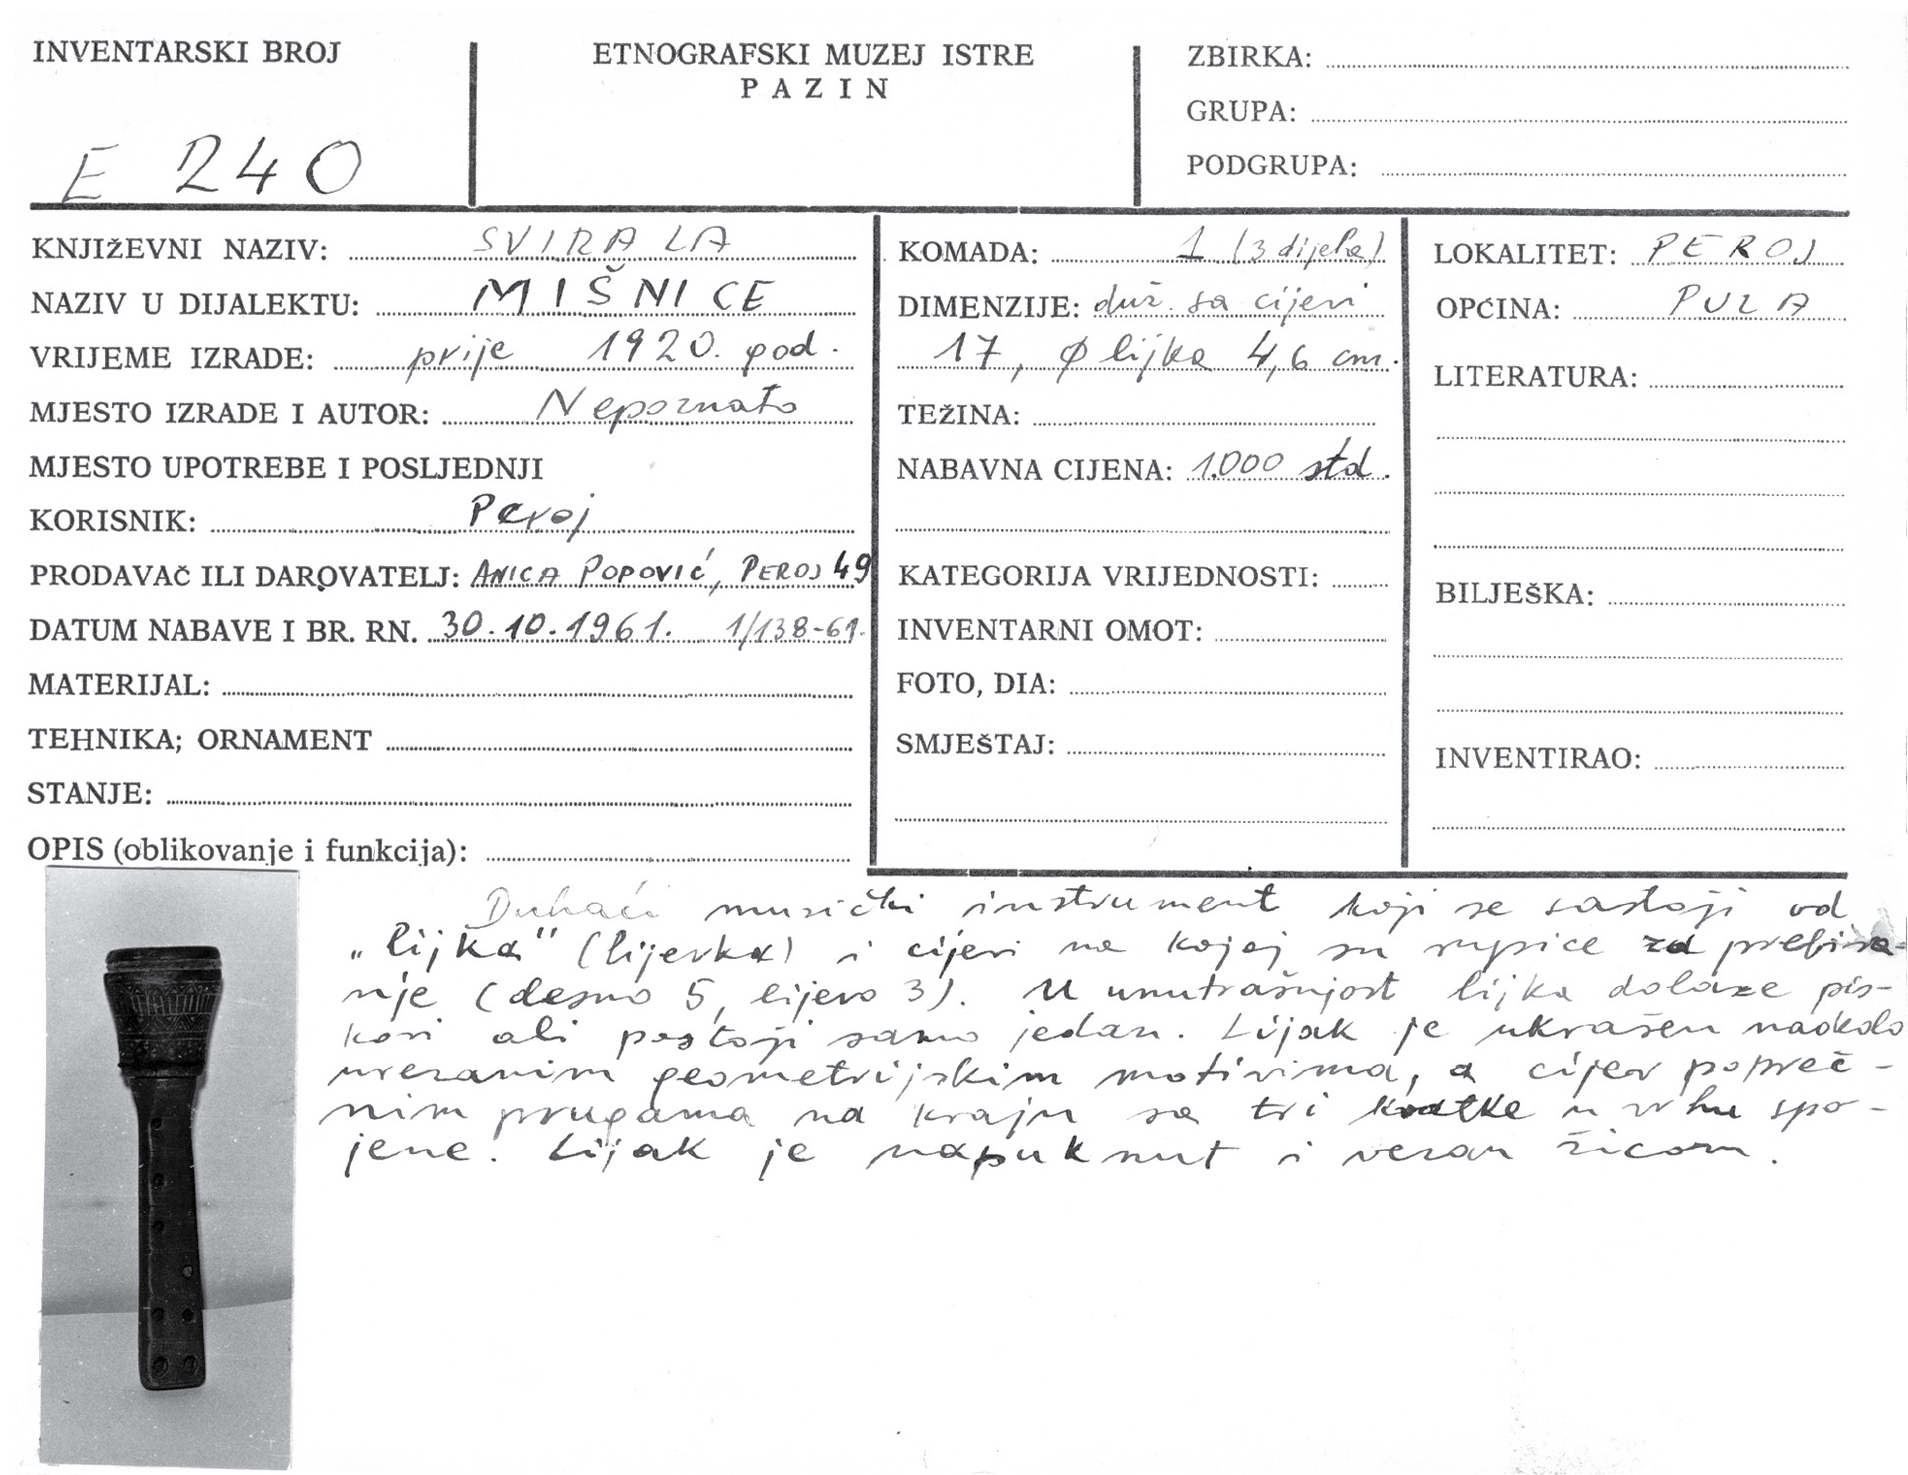 INVENTARSKI BROJ
E 240
ETNOGRAFSKI MUZEJ ISTRE
PAZIN
ZBIRKA:
GRUPA:
PODGRUPA:
KNJIŽEVNI NAZIV: SVIRALA
NAZIV U DIJALEKTU: MIŠNICE
VRIJEME IZRADE: prije 1920. god.
MJESTO IZRADE I AUTOR: Nepoznato
MJESTO UPOTREBE I POSLJEDNJI
KORISNIK: Peroj
PRODAVAČ ILI DAROVATELJ: ANICA POPOVIĆ, PEROJ 49
DATUM NABAVE I BR. RN. 30.10.1961. 1/138-61.
MATERIJAL:
TEHNIKA; ORNAMENT
STANJE:
OPIS (oblikovanje i funkcija):
KOMADA: 1 (3 dijela)
DIMENZIJE: duž. sa cijevi
17, Ø lijka 4,6 cm.
TEŽINA:
NABAVNA CIJENA: 1.000 std.
KATEGORIJA VRIJEDNOSTI:
INVENTARNI OMOT:
FOTO, DIA:
SMJEŠTAJ:
LOKALITET: PEROJ
OPĆINA: PULA
LITERATURA:
BILJEŠKA:
INVENTIRAO:
Duhaći muzički instrument koji se sastoji od
„lijka" (lijevka) i cijevi na kojoj su rupice za prebira-
nje (desno 5, lijevo 3). U unutrašnjost lijka dolaze pis-
kovi ali postoji samo jedan. Lijak je ukrašen naokolo
urezanim geometrijskim motivima, a cijev popreč-
nim prugama na kraju sa tri kratke u vrhu spo-
jene. Lijak je napuknut i vezan žicom.